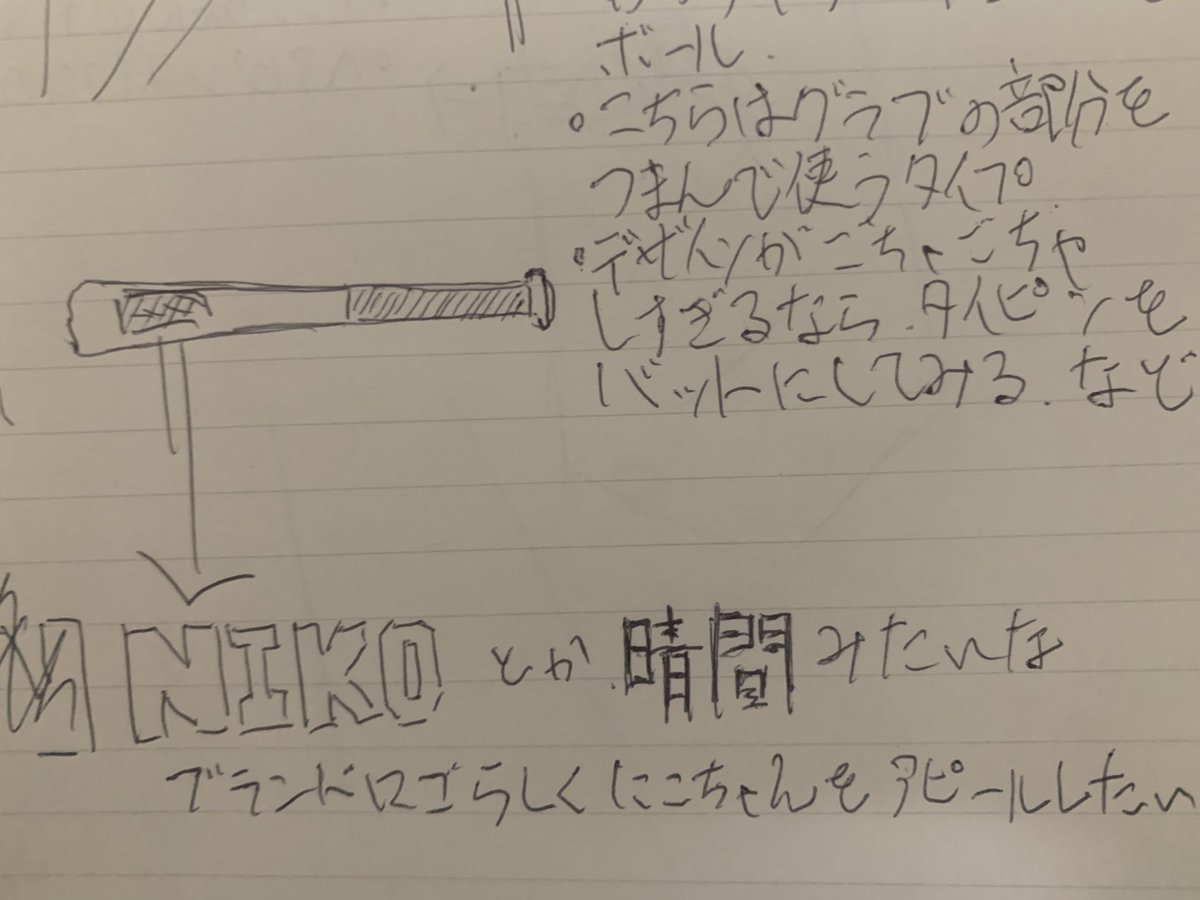 ボール.
・こちらはグラブの部分を
つまんで使うタイプ.
・デザインがごちゃごちゃ
しすぎるなら.タイピンを
バットにしてみる.など
NIKO とか.晴間みたいな
ブランドロゴらしくにこちゃんをアピールしたい